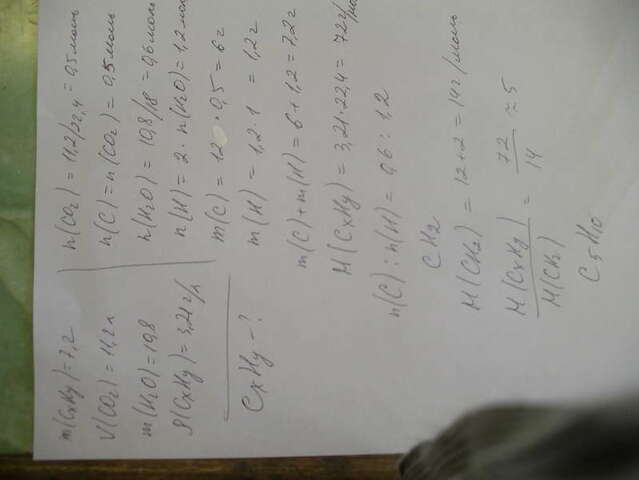 m(CxHy)=7,2
V(CO2)=11,2л
m(H2O)=10,8
ρ(CxHy)=3,21г/л
CxHy-?
n(CO2)=11,2/22,4=0,5моль
n(C)=n(CO2)=0,5моль
n(H2O)=10,8/18=0,6моль
n(H)=2·n(H2O)=1,2мол
m(C)=12·0,5=6г
m(H)=1,2·1=1,2г
m(C)+m(H)=6+1,2=7,2г
M(CxHy)=3,21·22,4=72г/мо
n(C):n(H)=0,6:1,2
CH2
M(CH2)=12+2=14г/моль
M(CxHy)/M(CH2)=72/14≈5
C5H10